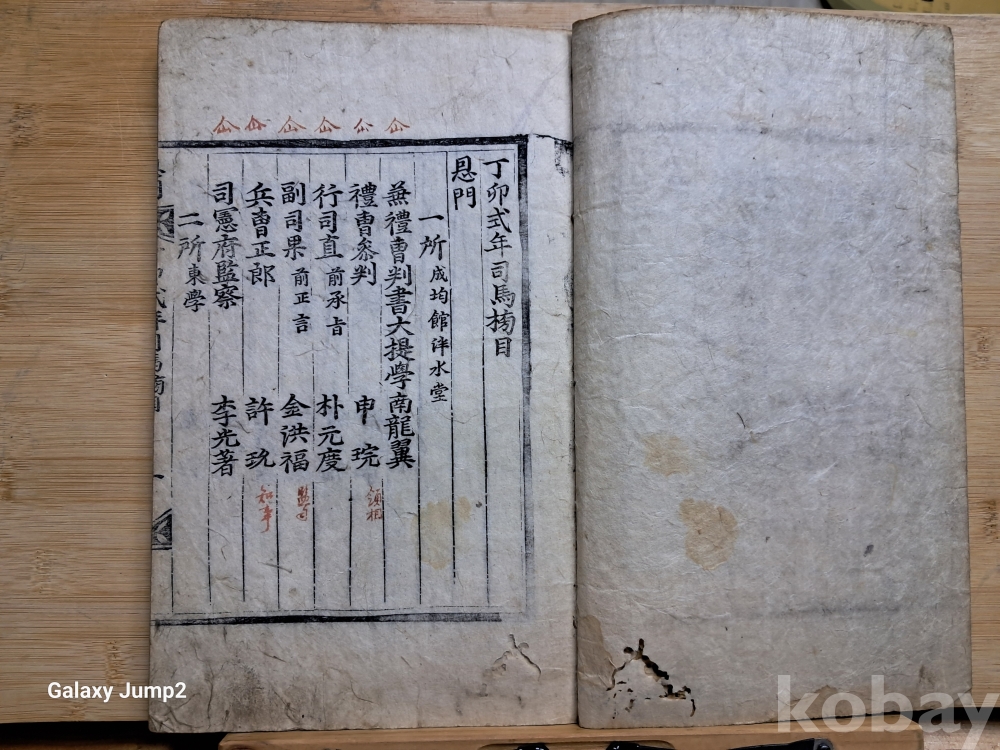 丁卯式年司馬榜目
恩門
一所 成均館泮水堂
兼禮曹判書大提學南龍翼
禮曹叅判 申琓 領相
行司直 前承旨 朴元度
副司果 前正言 金洪福
兵曹正郎 許玧 知事
司憲府監察 李光著
二所 東學
式年司馬榜目 一
Galaxy Jump2
kobay